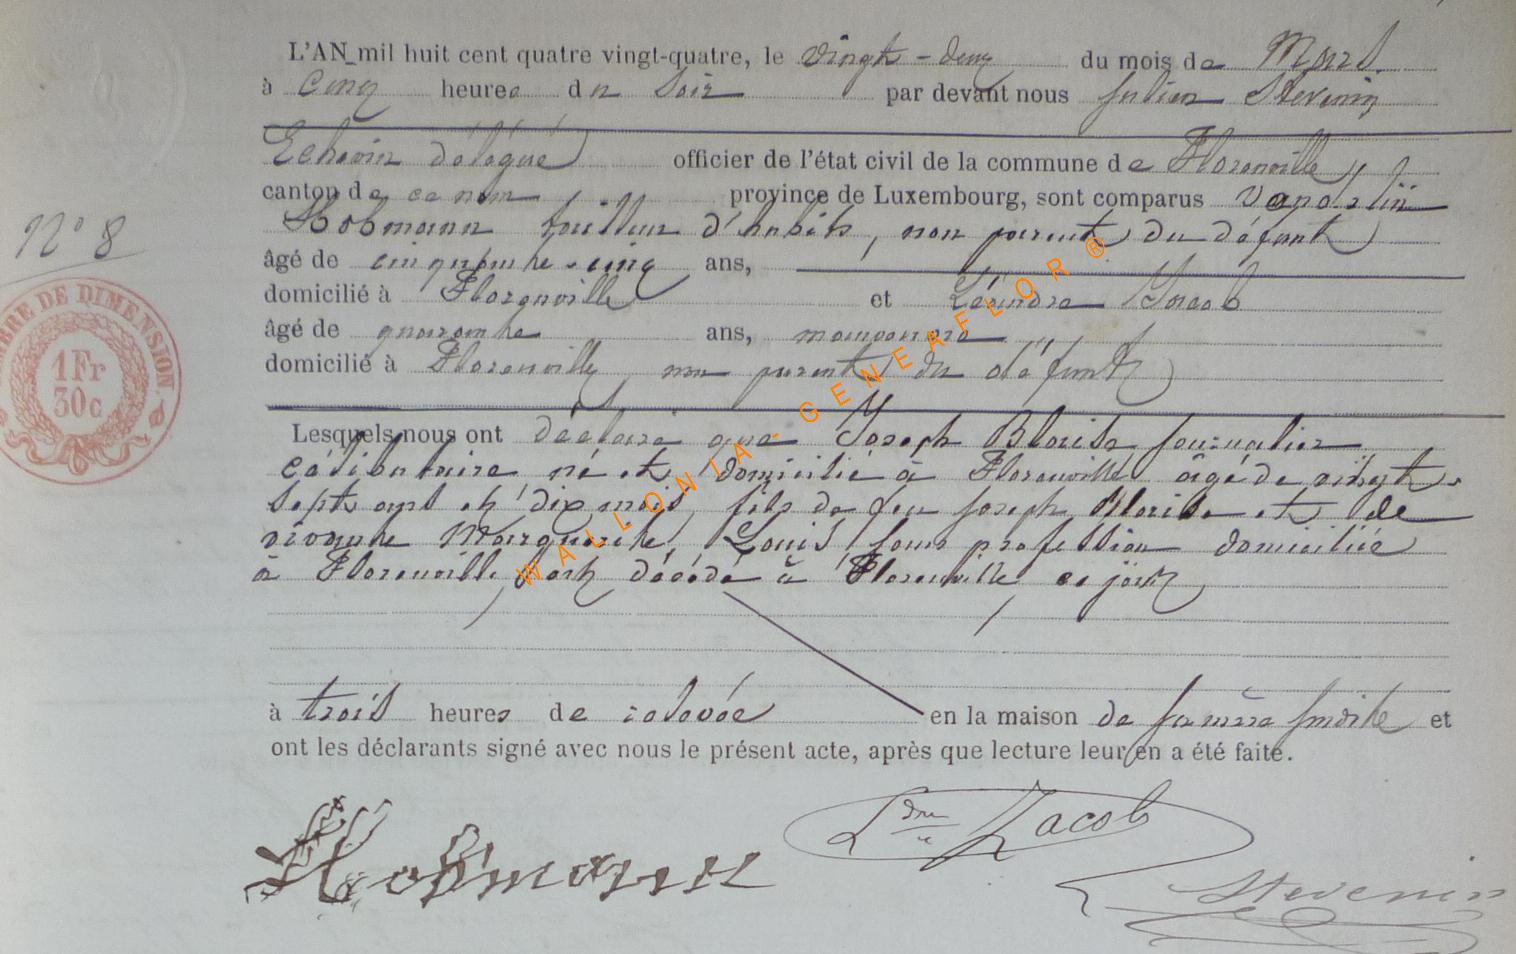 L'AN mil huit cent quatre vingt-quatre, le vingt-deux du mois de Mars
à cinq heures du soir par devant nous Julien Stevenin
Echevin délégué officier de l'état civil de la commune de Florenville
canton de ce nom province de Luxembourg, sont comparus Vandelin
Hobmann tailleur d'habits, non parent du défunt
N° 8
âgé de cinquante-cinq ans,
domicilié à Florenville et Léandre Jacob
TIMBRE DE DIMENSION
1Fr
30c
âgé de quarante ans, manoeuvre
domicilié à Florenville, non parent du défunt
Lesquels nous ont déclaré que Joseph Blaise journalier
célibataire né et domicilié à Florenville âgé de vingt-
sept ans et dix mois, fils de feu Joseph Blaise et de
vivante Marguerite Louis sans profession domiciliée
à Florenville, est décédé à Florenville ce jour
à trois heures de relevée en la maison de sa mère susdite et
ont les déclarants signé avec nous le présent acte, après que lecture leur en a été faite.
Hobmann Ldre Jacob
Stevenin
WALLONIA - GENEAFLOR ®